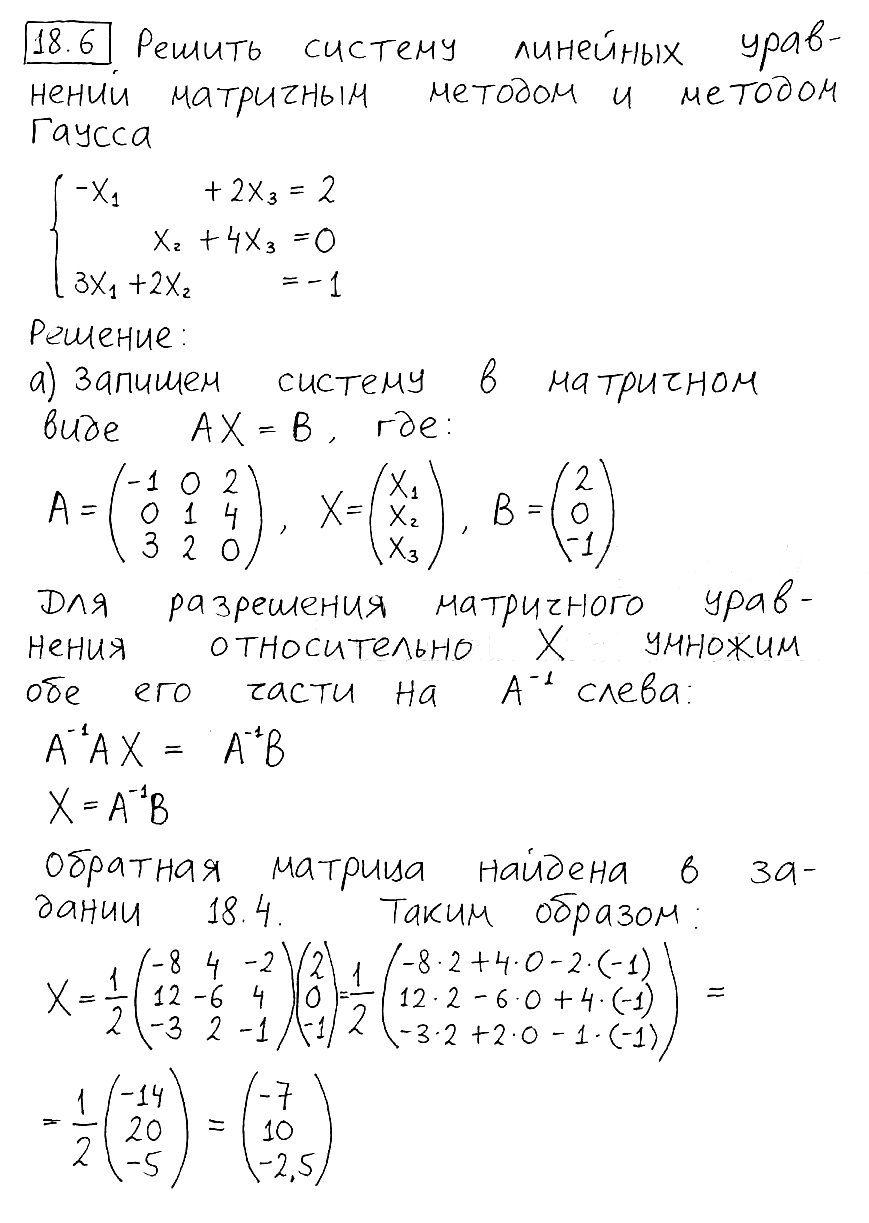 18.6 Решить систему линейных урав-
нений матричным методом и методом
Гаусса
-x₁ + 2x₃ = 2
x₂ + 4x₃ = 0
3x₁ + 2x₂ = -1
Решение:
а) Запишем систему в матричном
виде AX = B, где:
A = (-1 0 2; 0 1 4; 3 2 0), X = (x₁; x₂; x₃), B = (2; 0; -1)
Для разрешения матричного урав-
нения относительно X умножим
обе его части на A⁻¹ слева:
A⁻¹AX = A⁻¹B
X = A⁻¹B
Обратная матрица найдена в за-
дании 18.4. Таким образом:
X = 1/2 (-8 4 -2; 12 -6 4; -3 2 -1)(2; 0; -1) = 1/2 (-8·2+4·0-2·(-1); 12·2-6·0+4·(-1); -3·2+2·0-1·(-1)) =
= 1/2 (-14; 20; -5) = (-7; 10; -2,5)